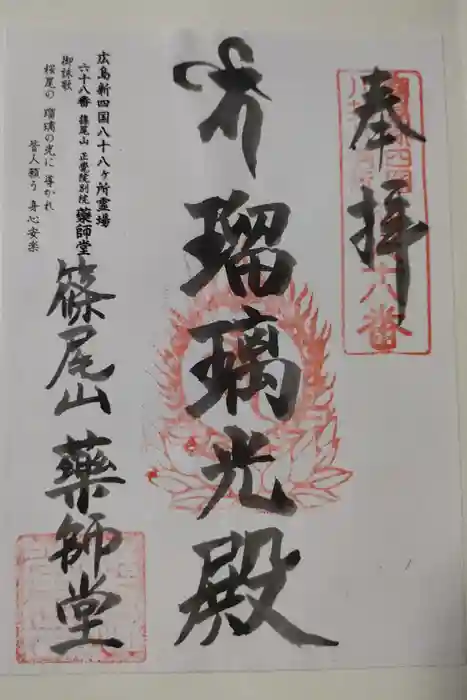 奉拝
六番
瑠璃光殿
広島新四国八十八ヶ所霊場
六十八番 篠尾山 正覺院別院 藥師堂
御詠歌
桜尾の 瑠璃の光に 導かれ
皆人願う 身心安楽
篠尾山 藥師堂